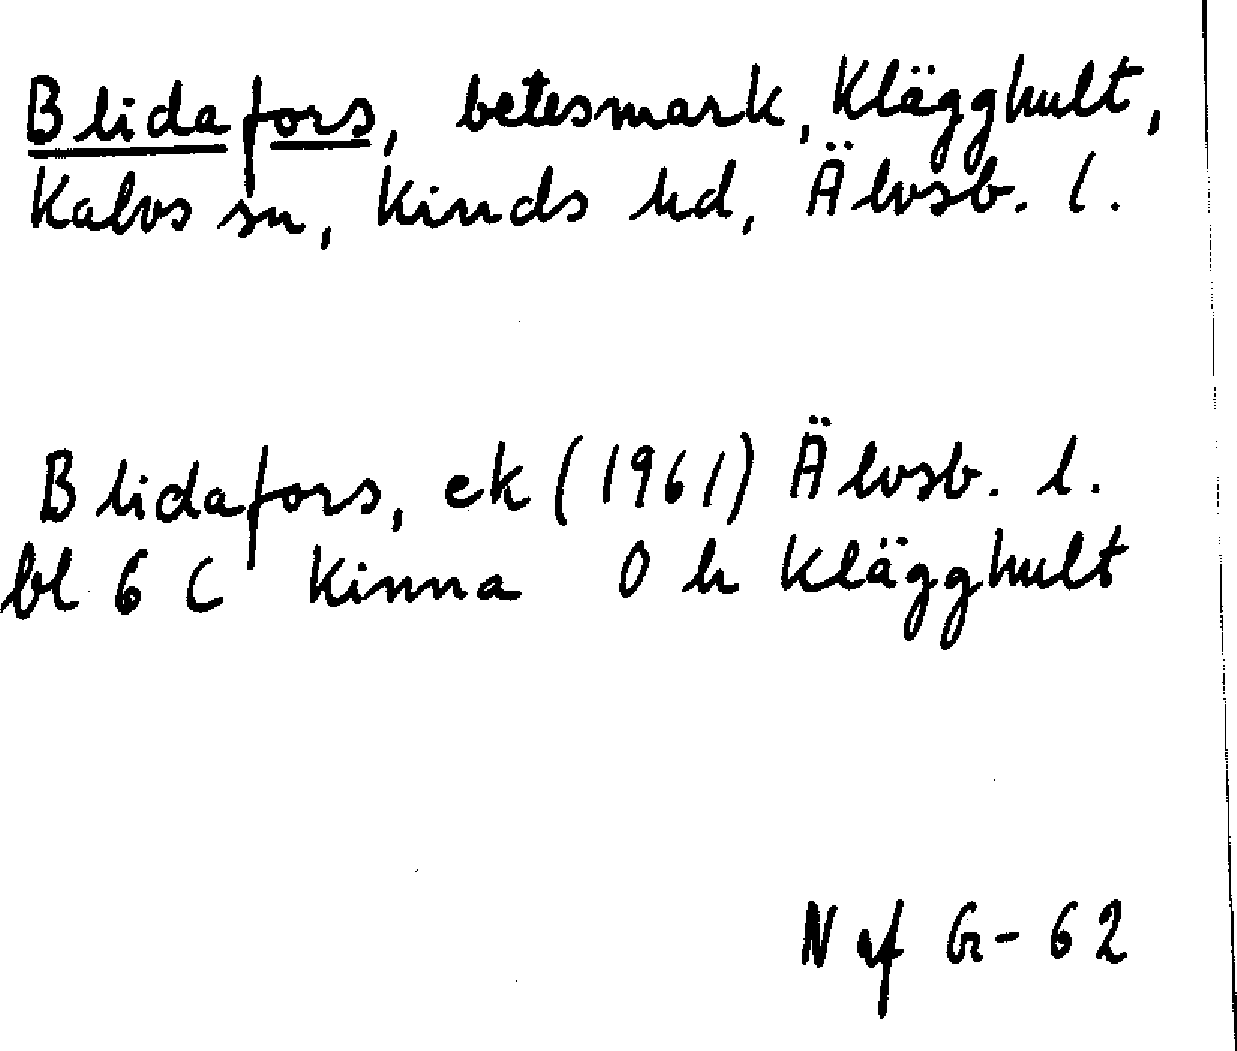 Blidafors, betesmark, Klägghult,
Kalvs sn, Kinds hd, Älvsb. l.
Blidafors, ek (1961) Älvsb. l.
bl 6 C Kinna 0 h Klägghult
N af G-62